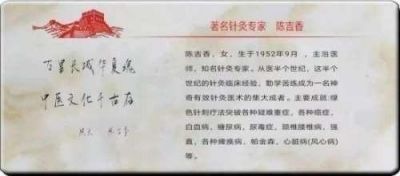 著名针灸专家 陈吉香
万里长城华夏魂
中医文化千古存
陈吉香，女，生于1952年9月，主治医
师，知名针灸专家。从医半个世纪，这半个
世纪的针灸临床经验，勤学苦练成为一名神
奇有效针灸医术的集大成者。主要成就:绿
色针刺疗法突破各种疑难重症，各种癌症，
白血病，糖尿病，尿毒症，颈椎腰椎病，强
直，各种瘫痪病，帕金森，心脏病(风心病)
等。